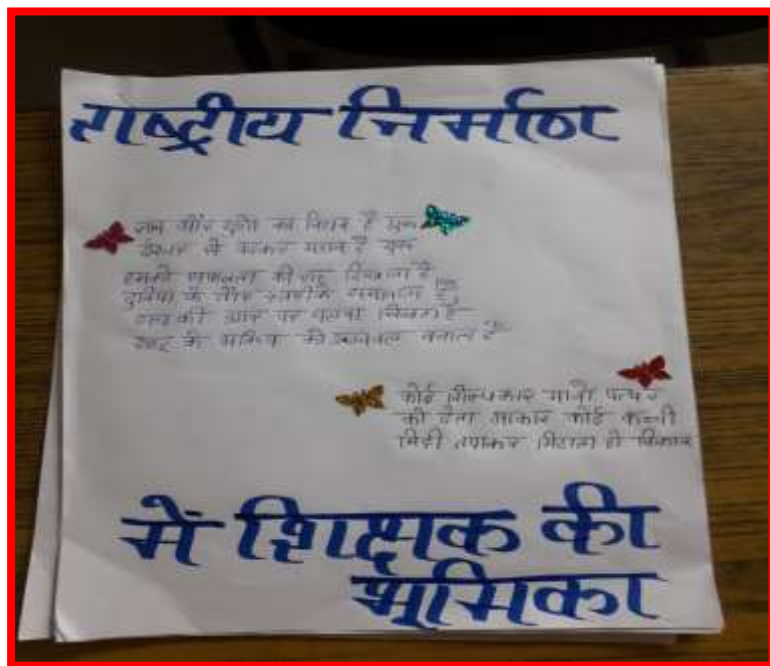 राष्ट्रीय निर्माण
ज्ञान और गुणों का है एक
ईश्वर से बढ़कर है एक
हमको सफलता की राह दिखाता है
दुनिया के तौर तरीके समझाता है
की राह पर चलना सिखाता है
राष्ट्र के भविष्य को उज्जवल बनाता है
कोई शिल्पकार मानो पत्थर
को देता आकार कोई कच्ची
मिट्टी तपाकर मिटाता हो विकार
में शिक्षक की
भूमिका